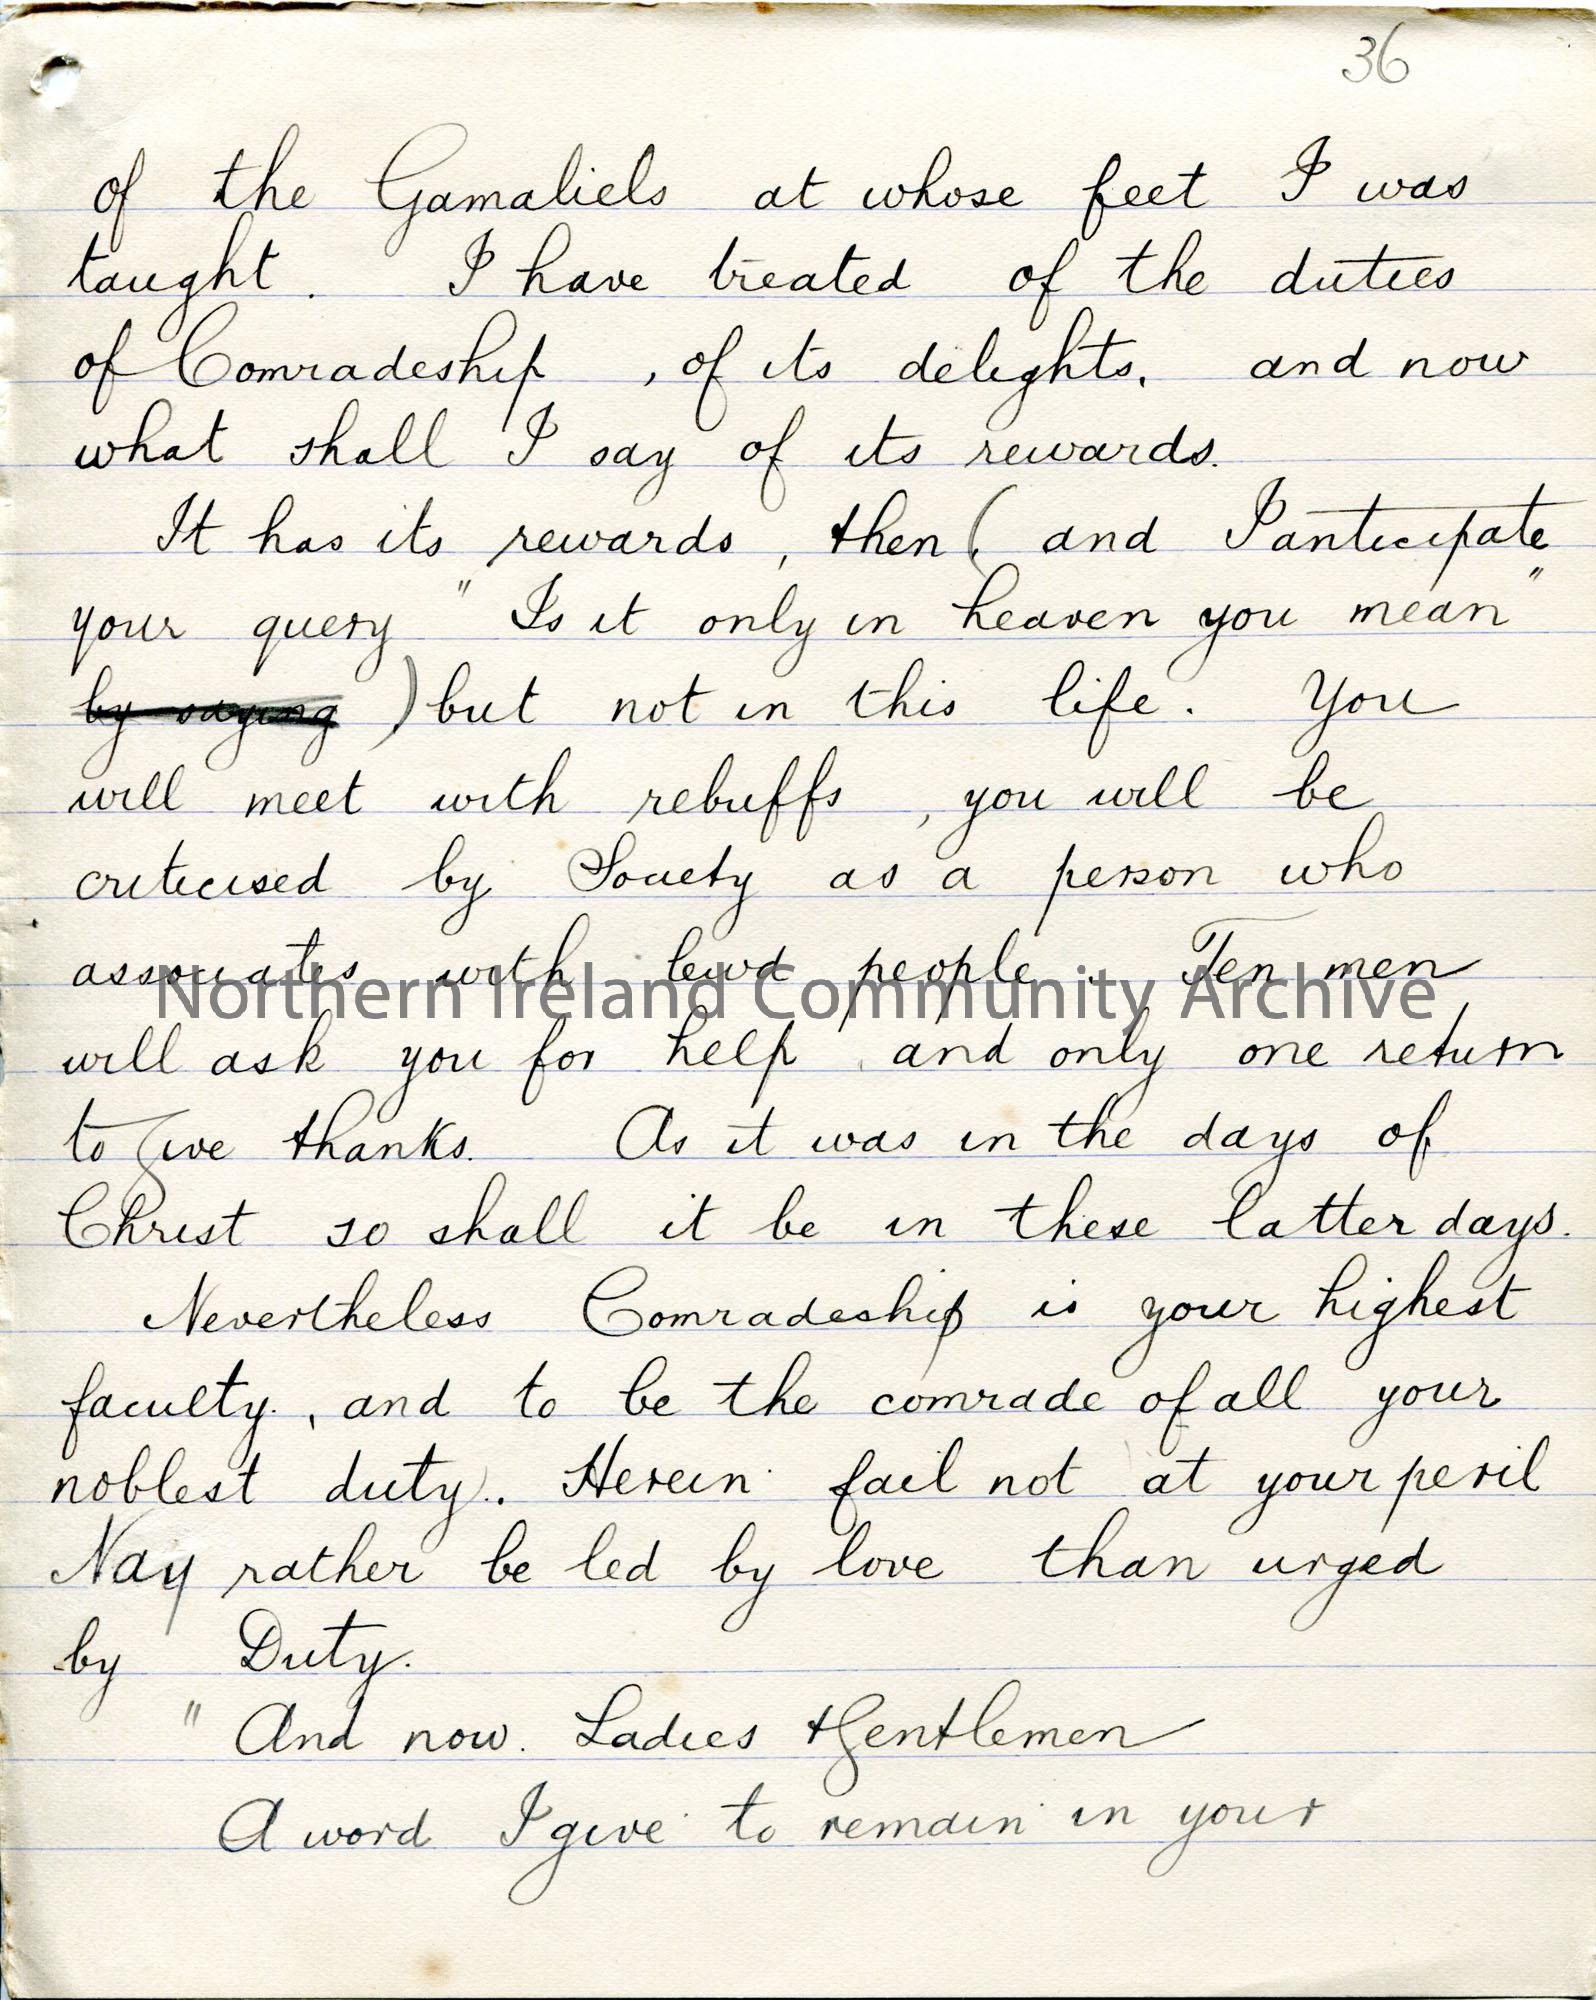 36
of the Gamaliels at whose feet I was
taught. I have treated of the duties
of Comradeship, of its delights, and now
what shall I say of its rewards.
It has its rewards, then (and I anticipate
your query "Is it only in heaven you mean"
by saying) but not in this life. You
will meet with rebuffs, you will be
criticised by Society as a person who
associates with lewd people. Ten men
Northern Ireland Community Archive
will ask you for help and only one return
to give thanks. As it was in the days of
Christ so shall it be in these latter days.
Nevertheless Comradeship is your highest
faculty, and to be the comrade of all your
noblest duty. Herein fail not at your peril
Nay rather be led by love than urged
by Duty.
" And now. Ladies & Gentlemen
A word I give to remain in your